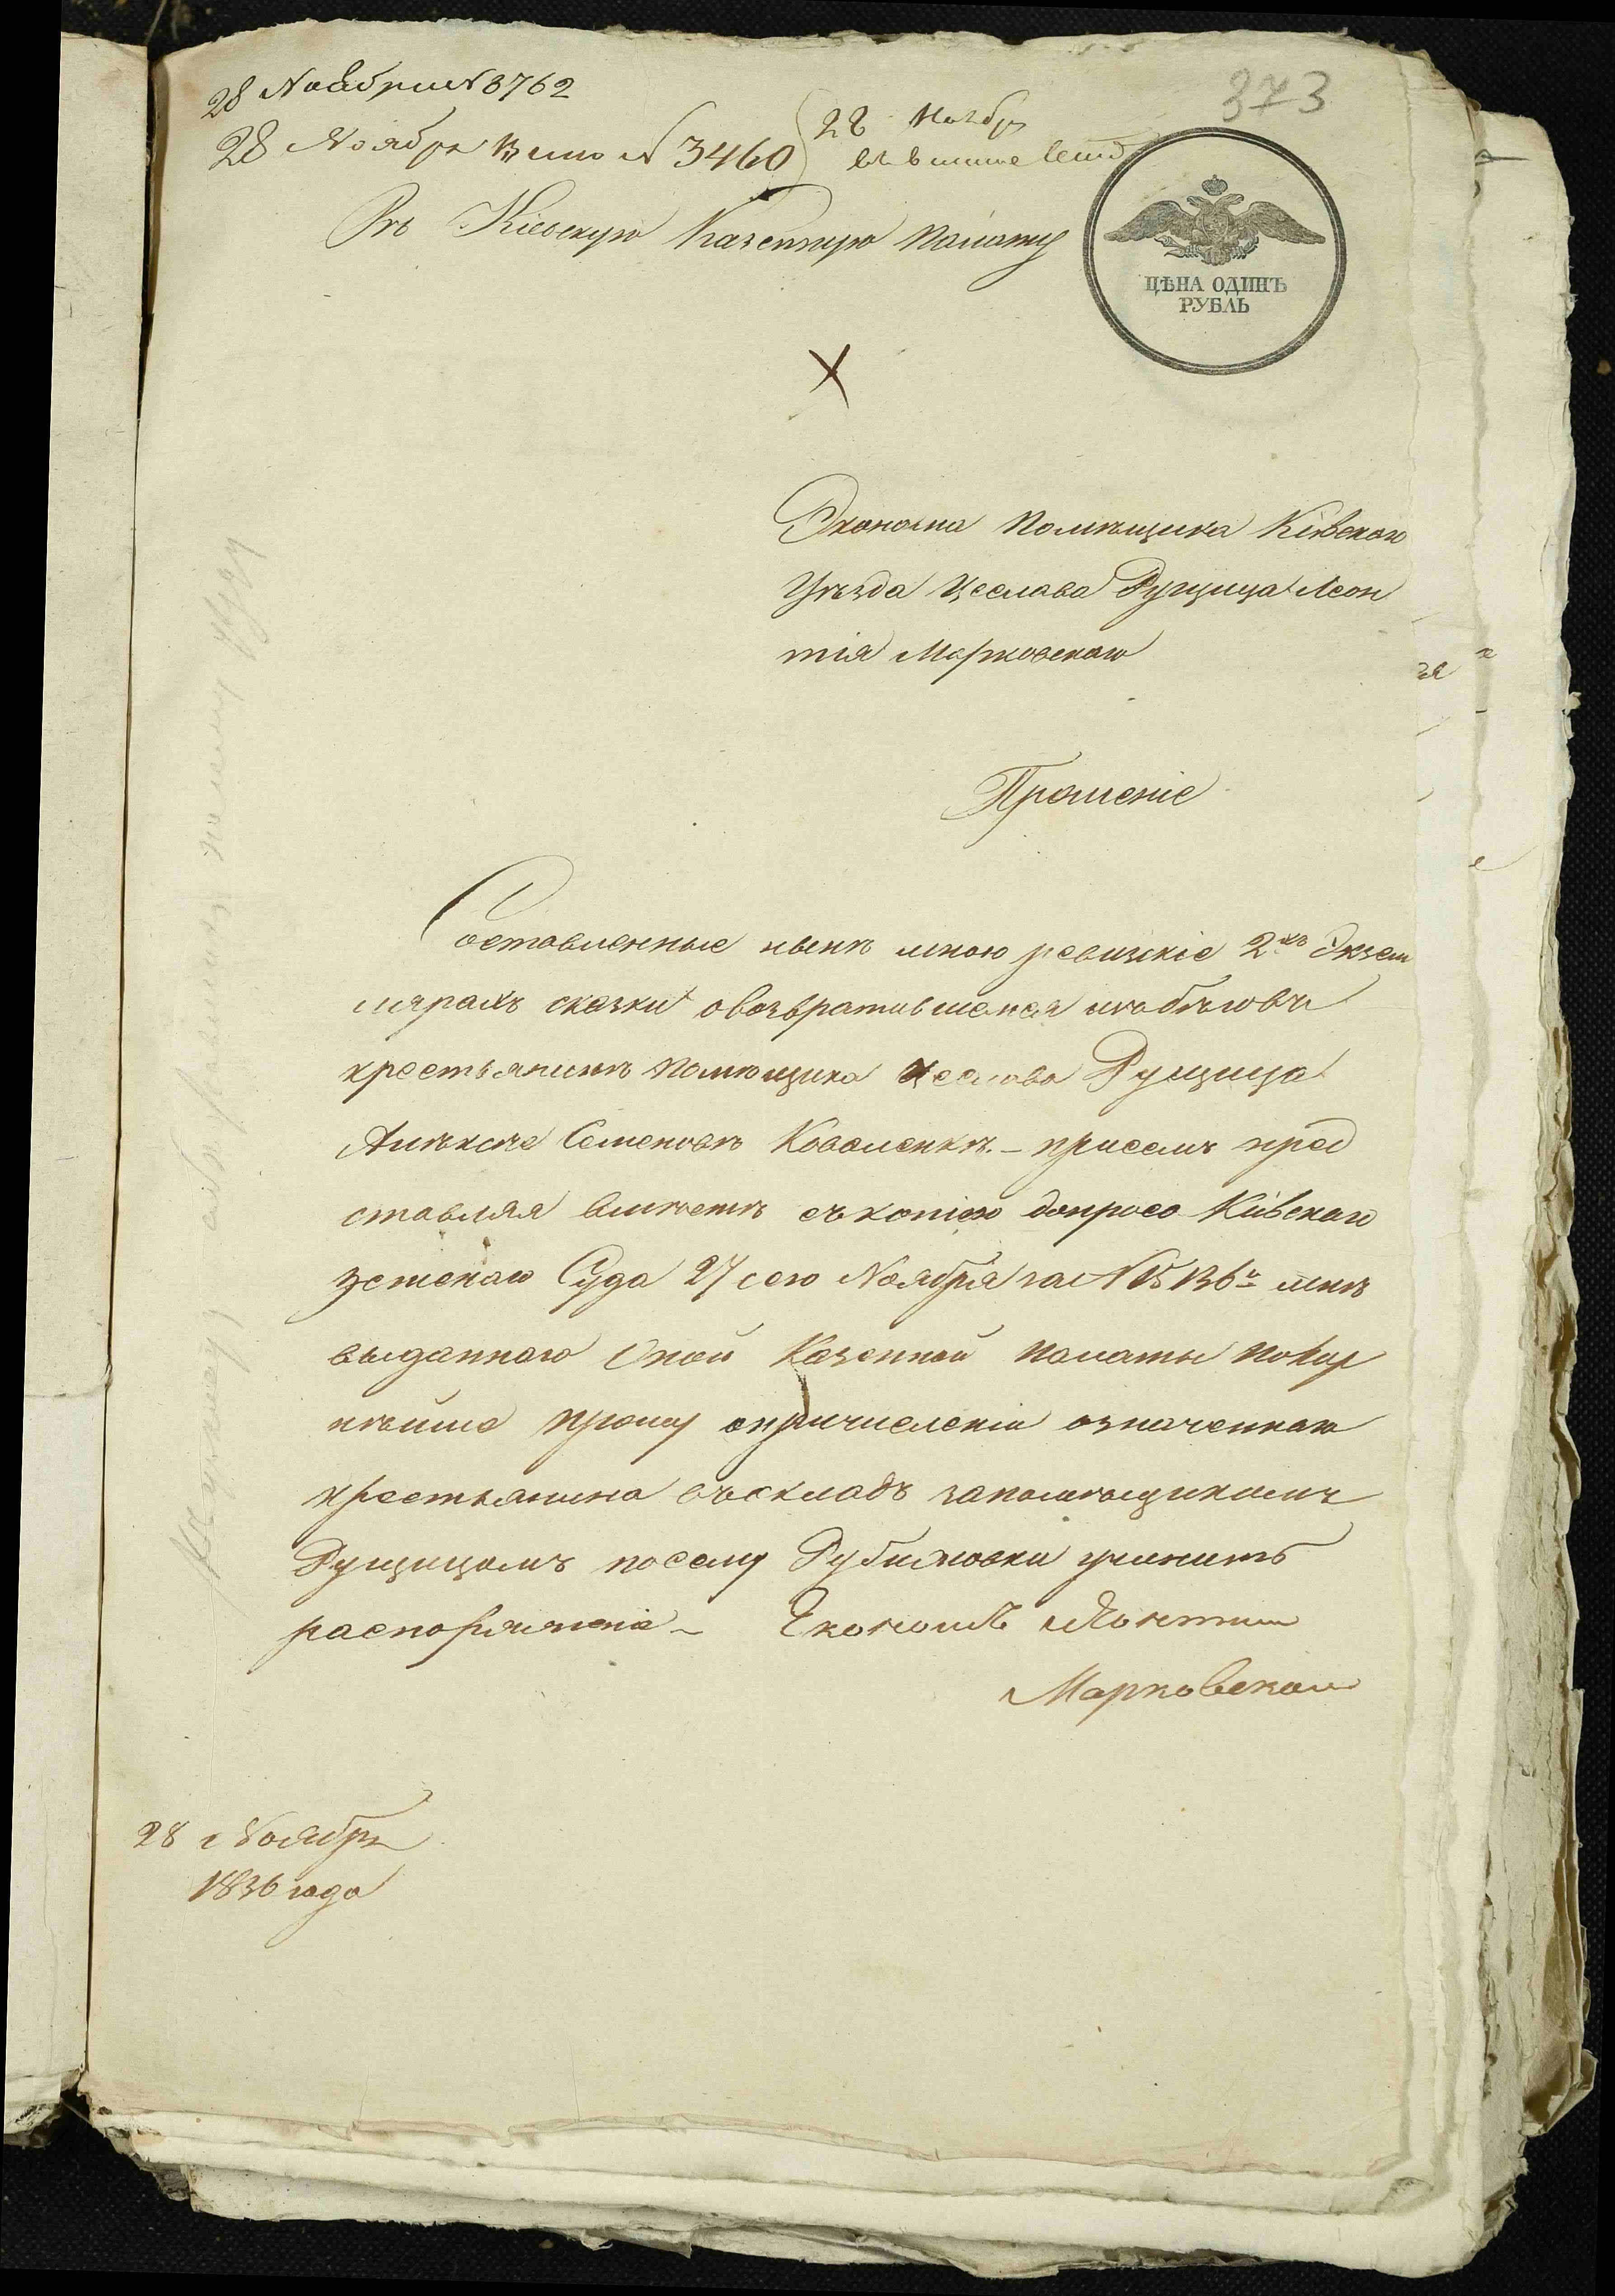 373
28 Ноября N 3762
28 Ноября N 3460
28 Ноябр
Въ Кіевскую Казенную Палату
ЦѢНА ОДИНЪ
РУБЛЬ
Эконома Помѣщика Кіевскаго
Уѣзда Цеслава Рущица Леон
тія Марковскаго
Прошеніе
Составленные мною ревизкіе 2хъ Экзем
лярахъ сказки овозвратившемся изъ бѣговъ
крестьянинѣ Помѣщика Цеслава Рущица
Алѣксѣе Семеновѣ Коваленкѣ. – присемъ пред
ставляя вмѣстѣ съ копіею допроса Кіевскаго
Земскаго Суда 27 сего Ноября за N мнѣ
выданнаго Оной Казенной Палаты покор
нѣйше прошу опричисленіи означеннаго
крестьянина въокладъ запомѣщикомъ
Рущицомъ поселу учинить
распоряженіе – Економъ Леонтий
Марковскии
28 Ноября
1836 года